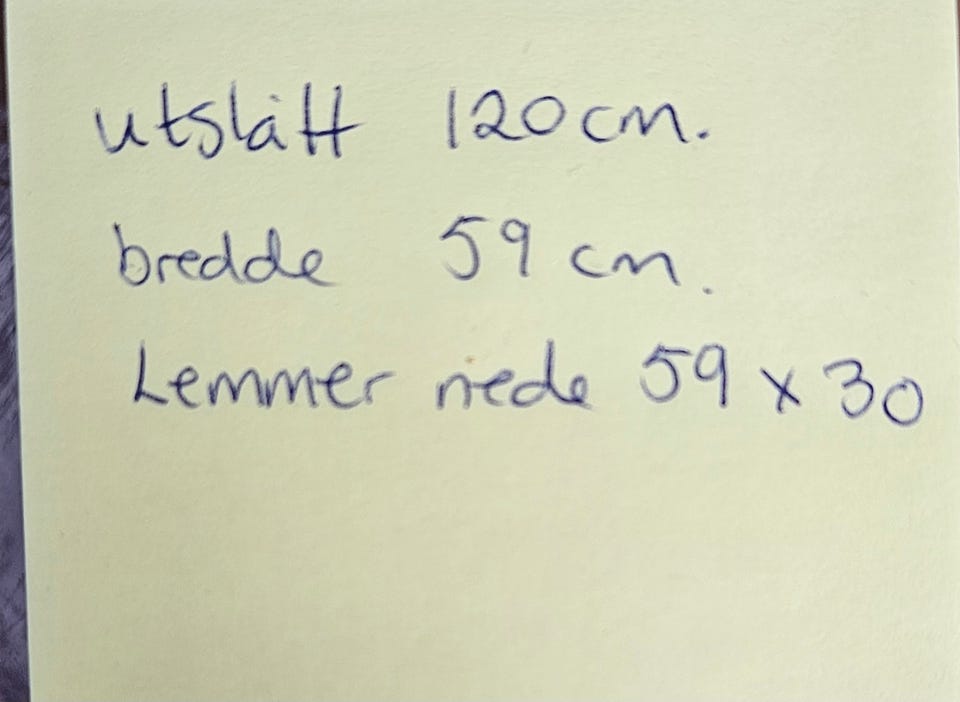 utslått 120cm.
bredde 59 cm.
Lemmer nede 59 x 30